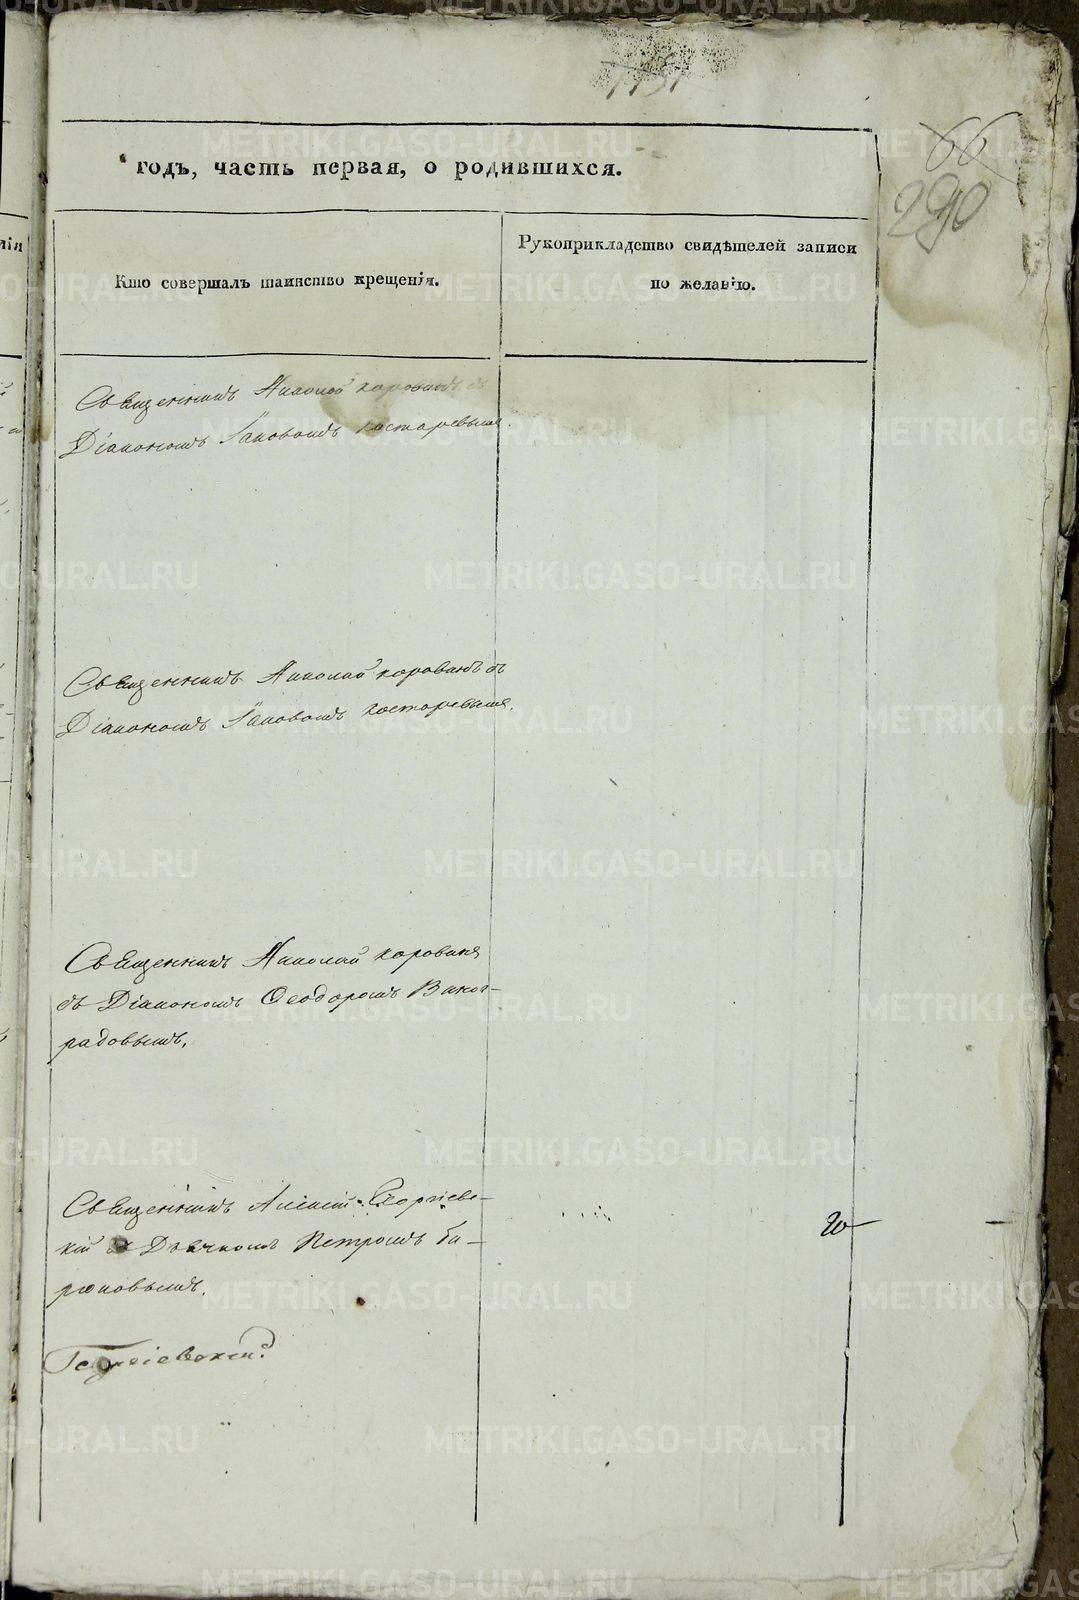 1151
66
290
годъ, часть первая, о родившихся.
нія
Кто совершалъ таинство крещенія.
Рукоприкладство свидѣтелей записи
по желанію.
Священникъ Николай Корованъ съ
Діакономъ Іаковомъ Костаревымъ.
Священникъ Николай Корованъ съ
Діакономъ Іаковомъ Костаревымъ.
Священникъ Николай Корованъ
съ Діакономъ Ѳеодоромъ Виног-
радовымъ.
Священникъ Алексій Георгіевс-
кій съ Дьячкомъ Петромъ Би-
рюковымъ.
Георгіевскій
20
METRIKI.GASO-URAL.RU